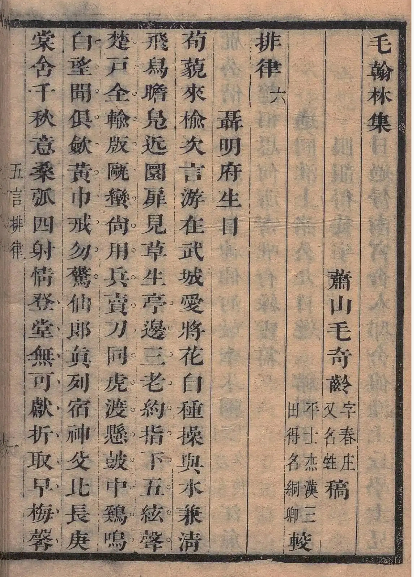 毛翰林集
蕭山毛奇齡字春庄又名甡稿
士杰漢三田得名絅卿較
排律六
聶明府生日
荀藐來檢次言游在武城愛將花自種操與水兼清
飛舄瞻鳧近圜扉見草生亭邊三老約指下五絃聲
楚戶全輸版甌蠻尚用兵賣刀同虎渡懸鼓中鷄鳴
白望聞俱斂黃巾戒勿驚仙郎眞列宿神父比長庚
棠舍千秋意桑弧四射情登堂無可獻折取早梅馨
五言排律